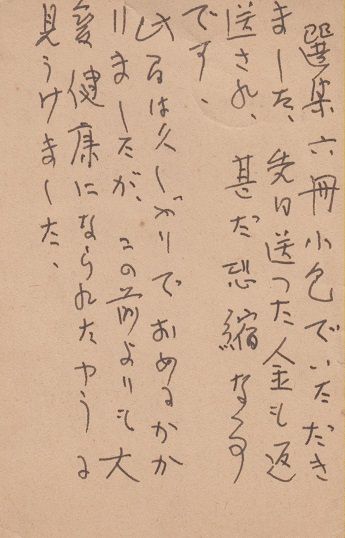 選集六冊小包でいただき
ました、先日送つた金も返
送され、甚だ恐縮な
です、
此間は久しぶりでおめにかか
りましたが、この前よりも大
変健康になられたやうに
見うけました、